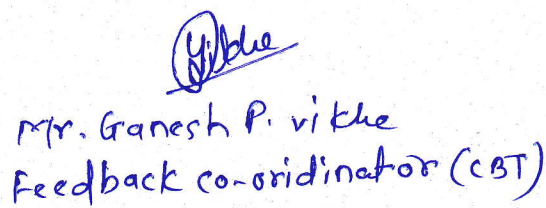 Vikhe
Mr. Ganesh P. vikhe
Feedback co-oridinator (CBT)